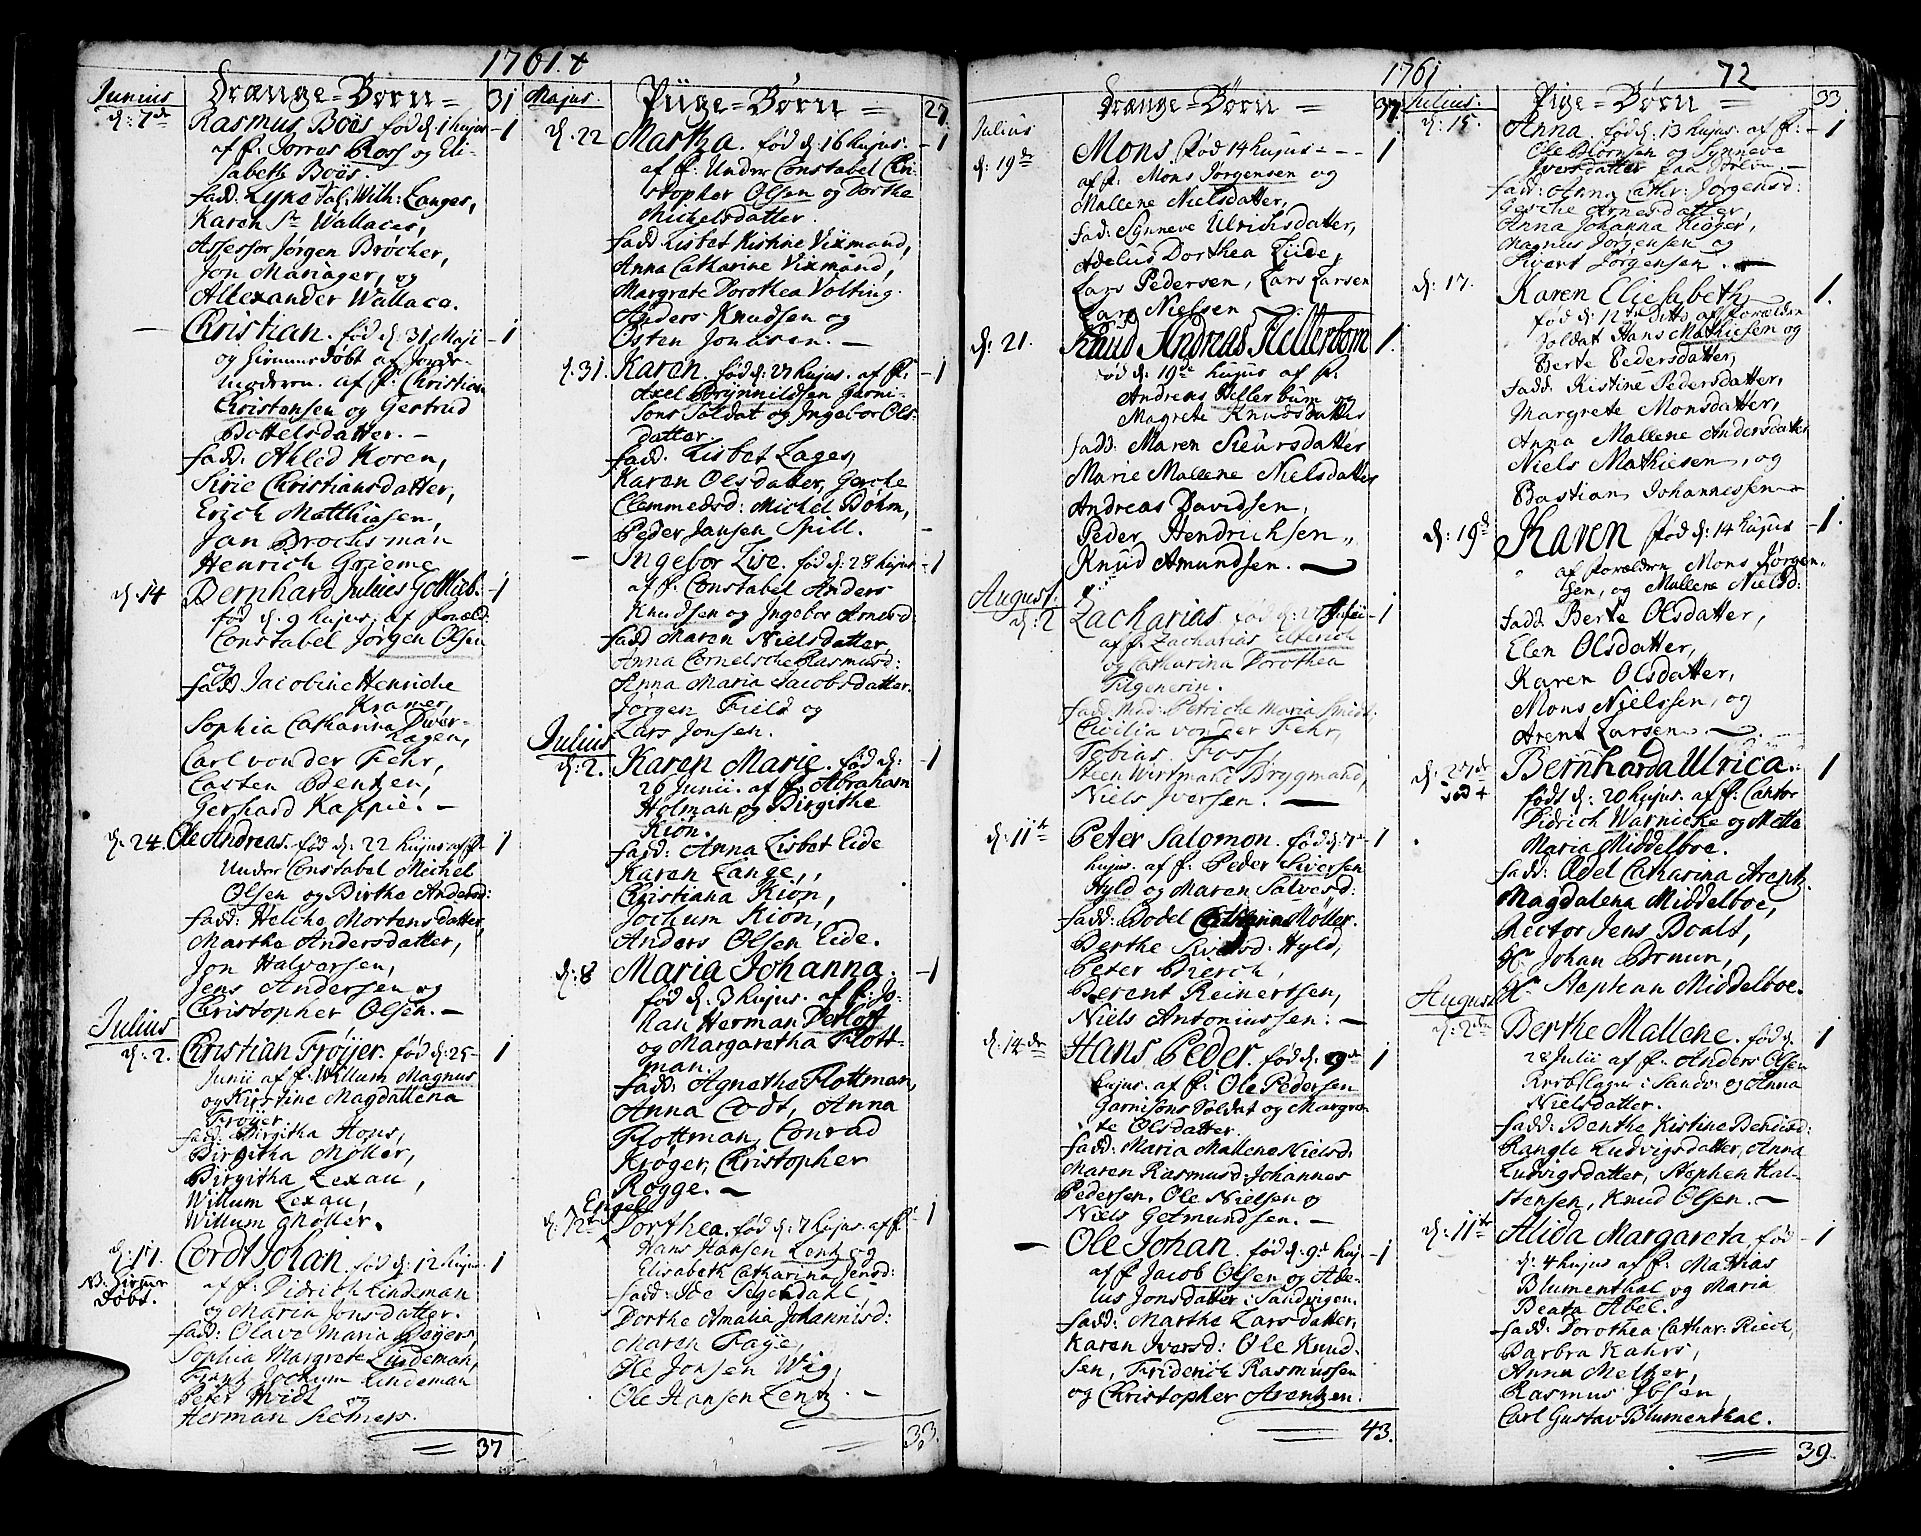 1761.
Junius
Drænge=Børn=
31
d: 7de
Rasmus Bois fød d: 1 hujus
1
af f. Torres Ross og Eli-
sabeth Bois.
fadd: Lyne Wilh: Langes,
Karen Wallaces,
Assessor Jørgen Brøcher,
Jon Mariager, og
Allexander Wallace.
Christian. fød d: 31 Maji
1
og hiemmedøbt af Jorde-
moderen. af f. Christian
Christensen og Gertrud
Bottelsdatter.
fadd: Ahled Koren,
Sirie Christiansdatter,
Erich Matthiasen,
Jan Brochsman
Henrich Grieme
d. 14
Bernhard Julius Gottlieb.
1
fød d. 9 hujus. af foræld:
Constabel Jørgen Olsen
og
fadd Jacobine Henriche
Kramer,
Sophia Catharina Dwer-
hagen,
Carl von der Fehr,
Casten Bentzen,
Gerhard Kappie.
d: 24.
Ole Andreas. fød d: 22 hujus af f.
1
Under Constabel Michel
Olsen og Birthe Andersd:
fadd: Helche Mortensdatter
Marthe Andersdatter,
Jon Halvorsen,
Jens Andersen og
Christopher Olsen.
Julius
d: 2.
Christian Frøyer. fød d: 25
1
Junii af f. Willum Magnus
og Kirstine Magdallena
Frøyer.
fadd: Birgitha Hops,
Birgitha Møller,
Birgitha Lexau,
Willum Lexau,
Willum Møller.
d: 17.
NB. hiemme
døbt.
Cordt Johan. fød d: 12 hujus
1
af f: Didrich Lindeman
og Maria Jonsdatter.
fadd: Olave Maria Beyers,
Sophia Margrete Lindeman,
Frantz Jochum Lindeman
Peter Widt og
Herman Reimers.
37
Majus.
Piige=Børn=
27.
d. 22
Martha. fød d: 16 hujus.
1
af f. Under Constabel Chri-
stopher Olsen og Dorthe
Michelsdatter.
fadd Lisbet Kistine Vixmand,
Anna Catharine Vixmand,
Margrete Dorothea Volting.
Anders Knudsen og
Osten Jonasen.
d. 31.
Karen. fød d: 27 hujus. af f.
1
Axel Brynnildsen Garni-
sons Soldat og Ingebor Ols-
datter.
fadd. Lisbet Lages,
Karen Olsdatter, Gerche
Clemmedsd: Michel Bøhm,
Peder Jansen Spill.
Ingebor Lise. fød d: 28 hujus
1
af f. Constabel Anders
Knudsen og Ingebor Arnesd:
fadd Maren Nielsdatter,
Anna Cornelsche Rasmusd:
Anna Maria Jacobsdatter.
Jørgen Field og
Lars Jonsen.
Julius
d: 2.
Karen Marie. fød d:
1
26 Junii. af f. Abraham
Holman og Birgithe
Kion.
fadd: Anna Lisbet Eide
Karen Lange,
Christiana Kion,
Jochum Kion,
Anders Olsen Eide.
d: 8
Maria Johanna.
1
fød d. 3 hujus. af f. Jo-
han Herman Detloff
og Margaretha Flott-
man.
fadd: Agnethe Flottman,
Anna Codt, Anna
Flottman, Conrad
Krøger, Christopher
Rogge.
Engel
d: 12te
Dorthea. fød d: 7 hujus. af f.
1
Hans Hansen Lentz og
Elisabeth Catharina Jensd:
fadd: Ide Segerdahl,
Dorthe Amalia Johannisd:
Maren Faye,
Ole Jonsen Wig,
Ole Hansen Lentz.
33.
1761
72
Julius
Drænge=Børn=
37.
d: 19de
Mons fød 14 hujus
1
af f. Mons Jørgensen og
Mallene Nielsdatter,
fad: Synneve Ulrichsdatter,
Adelus Dorthea Lude,
Lars Pedersen, Lars Larsen
Lars Nielsen
d: 21.
Knud Andreas Hellerbom
1.
fød d: 19de hujus af f.
Andreas Hellerbum og
Magrete Knudsdatter
fadd: Maren Siursdatter
Marie Mallene Nielsdatter
Andreas Davidsen,
Peder Hendrichsen,
Knud Amundsen.
August.
d: 2
Zacharias fød d: 27 Julii
1
af f. Zacharias
og Catharina Dorothea
Filgenerin.
fadd Mad: Petriche Maria Smidt,
Cicilia von der Fehr,
Tobias Foss,
Steen Wirtmand Brygmand,
Niels Iversen.
d: 11te
Peter Salomon. fød d: 7de
1
hujus. af f. Peder Siversen
Hyld og Maren Salvesd:
fadd: Bodel Cathrina Møller.
Berthe Siversd: Hyld,
Peter Dierch,
Berent Reinertsen,
Niels Antoniussen.
d: 14de
Hans Peder. fød d. 9de
1
hujus. af f. Ole Pedersen
Garnisons Soldat og Margre-
te Olsdatter.
fadd: Maria Mallene Nielsd.
Maren Rasmusd: Johannes
Pedersen. Ole Nielsen og
Niels Getmundsen.
Ole Johan. fød d: 9de huj
1
af f. Jacob Olsen og Ade-
lus Jonsdatter i Sandvigen.
fadd: Marthe Larsdatter,
Karen Iversd: Ole Knud-
sen, Friderich Rasmussen
og Christopher Arentzen.
43.
Julius.
Pige=Børn=
33
d: 15.
Anna. fød d: 13 hujus af f:
1
Ole Biørnsen og Synneve
Iversdatter
fadd: Anna Cathr: Jørgensd:
Gesche Arnesdatter,
Anna Johanna Krøger,
Magnus Jørgensen og
Sivert Jørgensen.
d: 17.
Karen Eliesabeth
1.
fød d: 12te ditto af forældre
Soldat Hans Mathiesen og
Berte Pedersdatter,
fadd: Kistine Pedersdatter,
Margrete Monsdatter,
Anna Mallene Andersdatter
Niels Mathiesen, og
Bastian Johannessen
d: 19d
Karen fød d: 14 hujus
1.
af forældre Mons Jørgen-
sen, og Mallene Nielsd:
fadd. Berte Olsdatter,
Elen Olsdatter,
Karen Olsdatter,
Mons Nielssen, og
Arent Larsen
d: 27de
Bernharda Ulrica.
1
født d: 20 hujus. af f: Cantor
Didrich Warnicke og Mette
Maria Middelboe.
fadd: Odel Catharina Arentz.
Magdalena Middelboe,
Rector Jens Boalt,
Hr. Johan Brun,
Hr. Stephan Middelboe.
August
d: 2den
Berthe Mallene. fød d.
1
28 Julii af f. Anders Olsen
Knibslager i Sandv: og Anna
Nielsdatter.
fadd: Benthe Kistine Bendixd:
Rangle Ludvigsdatter, Anna
Ludvigsdatter, Stephen Hal-
stensen, Knud Olsen.
d: 11te
Alida Margareta fød
1
d: 4 hujus af f: Mathias
Blumenthal og Maria
Beata Abel.
fadd: Dorothea Cathar: Riech,
Barbra Kahrs,
Anna Meltzer,
Rasmus Ibsen,
Carl Gustav Blumenthal.
39.